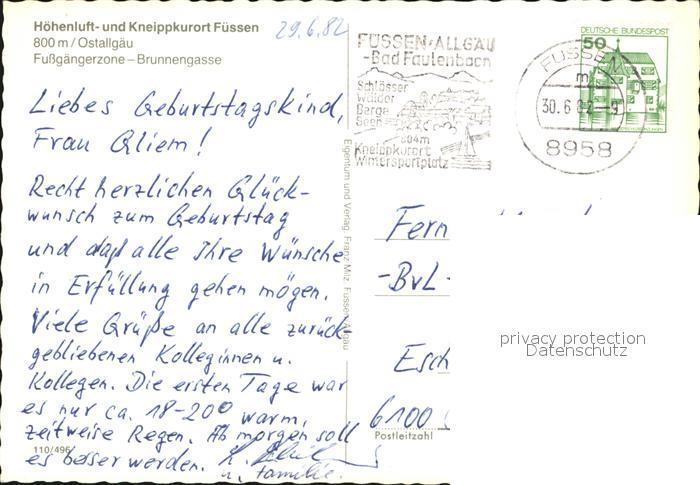 Höhenluft- und Kneippkurort Füssen
800 m / Ostallgäu
Fußgängerzone – Brunnengasse
29.6.82
Liebes Geburtstagskind,
Frau Gliem!
Recht herzlichen Glück-
wunsch zum Geburtstag
und daß alle Ihre Wünsche
in Erfüllung gehen mögen.
Viele Grüße an alle zurück-
gebliebenen Kolleginnen u.
Kollegen. Die ersten Tage war
es nur ca. 18-20° warm,
zeitweise Regen. Ab morgen soll
es besser werden.
u. Familie.
110/496
Eigentum und Verlag Franz Milz, Füssen/Allgäu
FÜSSEN/ALLGÄU
-Bad Faulenbach
Schlösser
Wälder
Berge
Seen
804m
Kneippkurort
Wintersportplatz
FÜSSEN
m
30.6.82-9
8958
DEUTSCHE BUNDESPOST
50
Fern
-BvL-
Esch
6100
Postleitzahl
privacy protection
Datenschutz